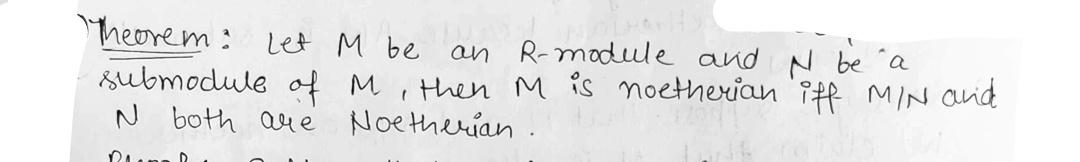 Theorem: Let M be an R-module and N be a
submodule of M, then M is noetherian iff M/N and
N both are Noetherian.